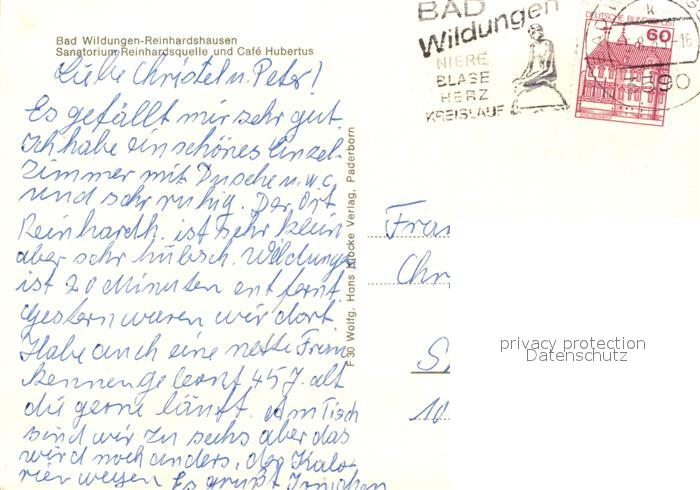 Bad Wildungen-Reinhardshausen
Sanatorium Reinhardsquelle und Café Hubertus
Liebe Christel u. Peter!
Es gefällt mir sehr gut.
Ich habe ein schönes Einzel-
zimmer mit Dusche u. W.C.
und sehr ruhig. Der Ort
Reinhardh. ist sehr klein
aber sehr hübsch. Wildungen
ist 20 Minuten entfernt.
Gestern waren wir dort.
Habe auch eine nette Frau
kennengelernt 45 J. alt
die gerne läuft. Am Tisch
sind wir zu sechs aber das
wird noch anders, der Kalo-
rien wegen. Es grüßt
F 30 Wolfg. Hans Klocke Verlag, Paderborn
BAD
Wildungen
NIERE
BLASE
HERZ
KREISLAUF
DEUTSCHE BUNDESPOST
60
3590
Fra
Chr
S
10
privacy protection
Datenschutz